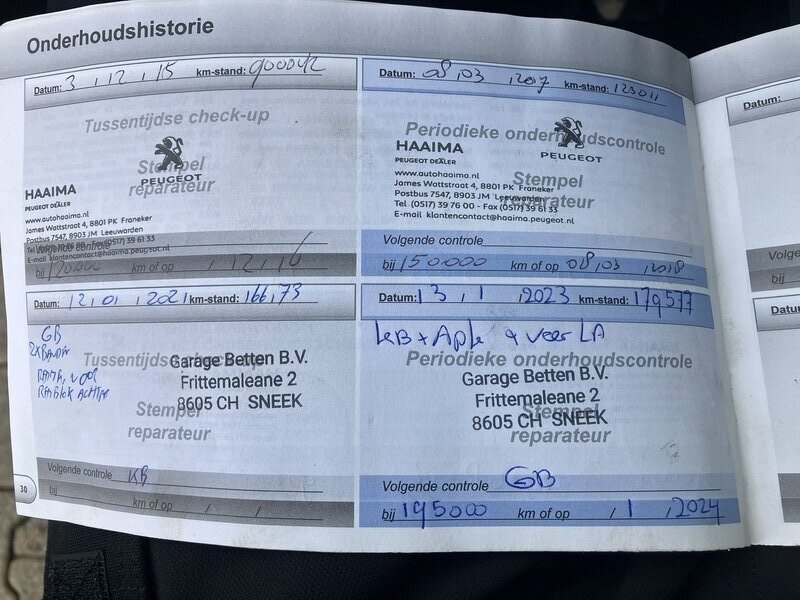 Onderhoudshistorie
Datum: 3 , 12 , 15 km-stand: 900042
Tussentijdse check-up
Stempel
reparateur
PEUGEOT
HAAIMA
PEUGEOT DEALER
www.autohaaima.nl
James Wattstraat 4, 8801 PK Franeker
Postbus 7547, 8903 JM Leeuwarden
Tel. (0517) 39 76 00 - Fax (0517) 39 61 33
E-mail klantencontact@haaima.peugeot.nl
Volgende controle
bij 120.000 km of op / 12 , 16
Datum: 08 , 03 , 2017 km-stand: 125011
Periodieke onderhoudscontrole
Stempel
reparateur
PEUGEOT
HAAIMA
PEUGEOT DEALER
www.autohaaima.nl
James Wattstraat 4, 8801 PK Franeker
Postbus 7547, 8903 JM Leeuwarden
Tel. (0517) 39 76 00 - Fax (0517) 39 61 33
E-mail klantencontact@haaima.peugeot.nl
Volgende controle
bij 150.000 km of op 08 , 03 , 2018
Datum: 12 , 01 , 2021 km-stand: 166,73
GB
2x
Tussentijdse check-up
Stempel
reparateur
Garage Betten B.V.
Frittemaleane 2
8605 CH SNEEK
REMBLOK ACHTER
Volgende controle KB
bij km of op / /
Datum: 13 , 1 , 2023 km-stand: 179577
KB + Apk + veer LA
Periodieke onderhoudscontrole
Stempel
reparateur
Garage Betten B.V.
Frittemaleane 2
8605 CH SNEEK
Volgende controle GB
bij 195000 km of op / 1 , 2024
30
Datum:
Volge
bij
Datu